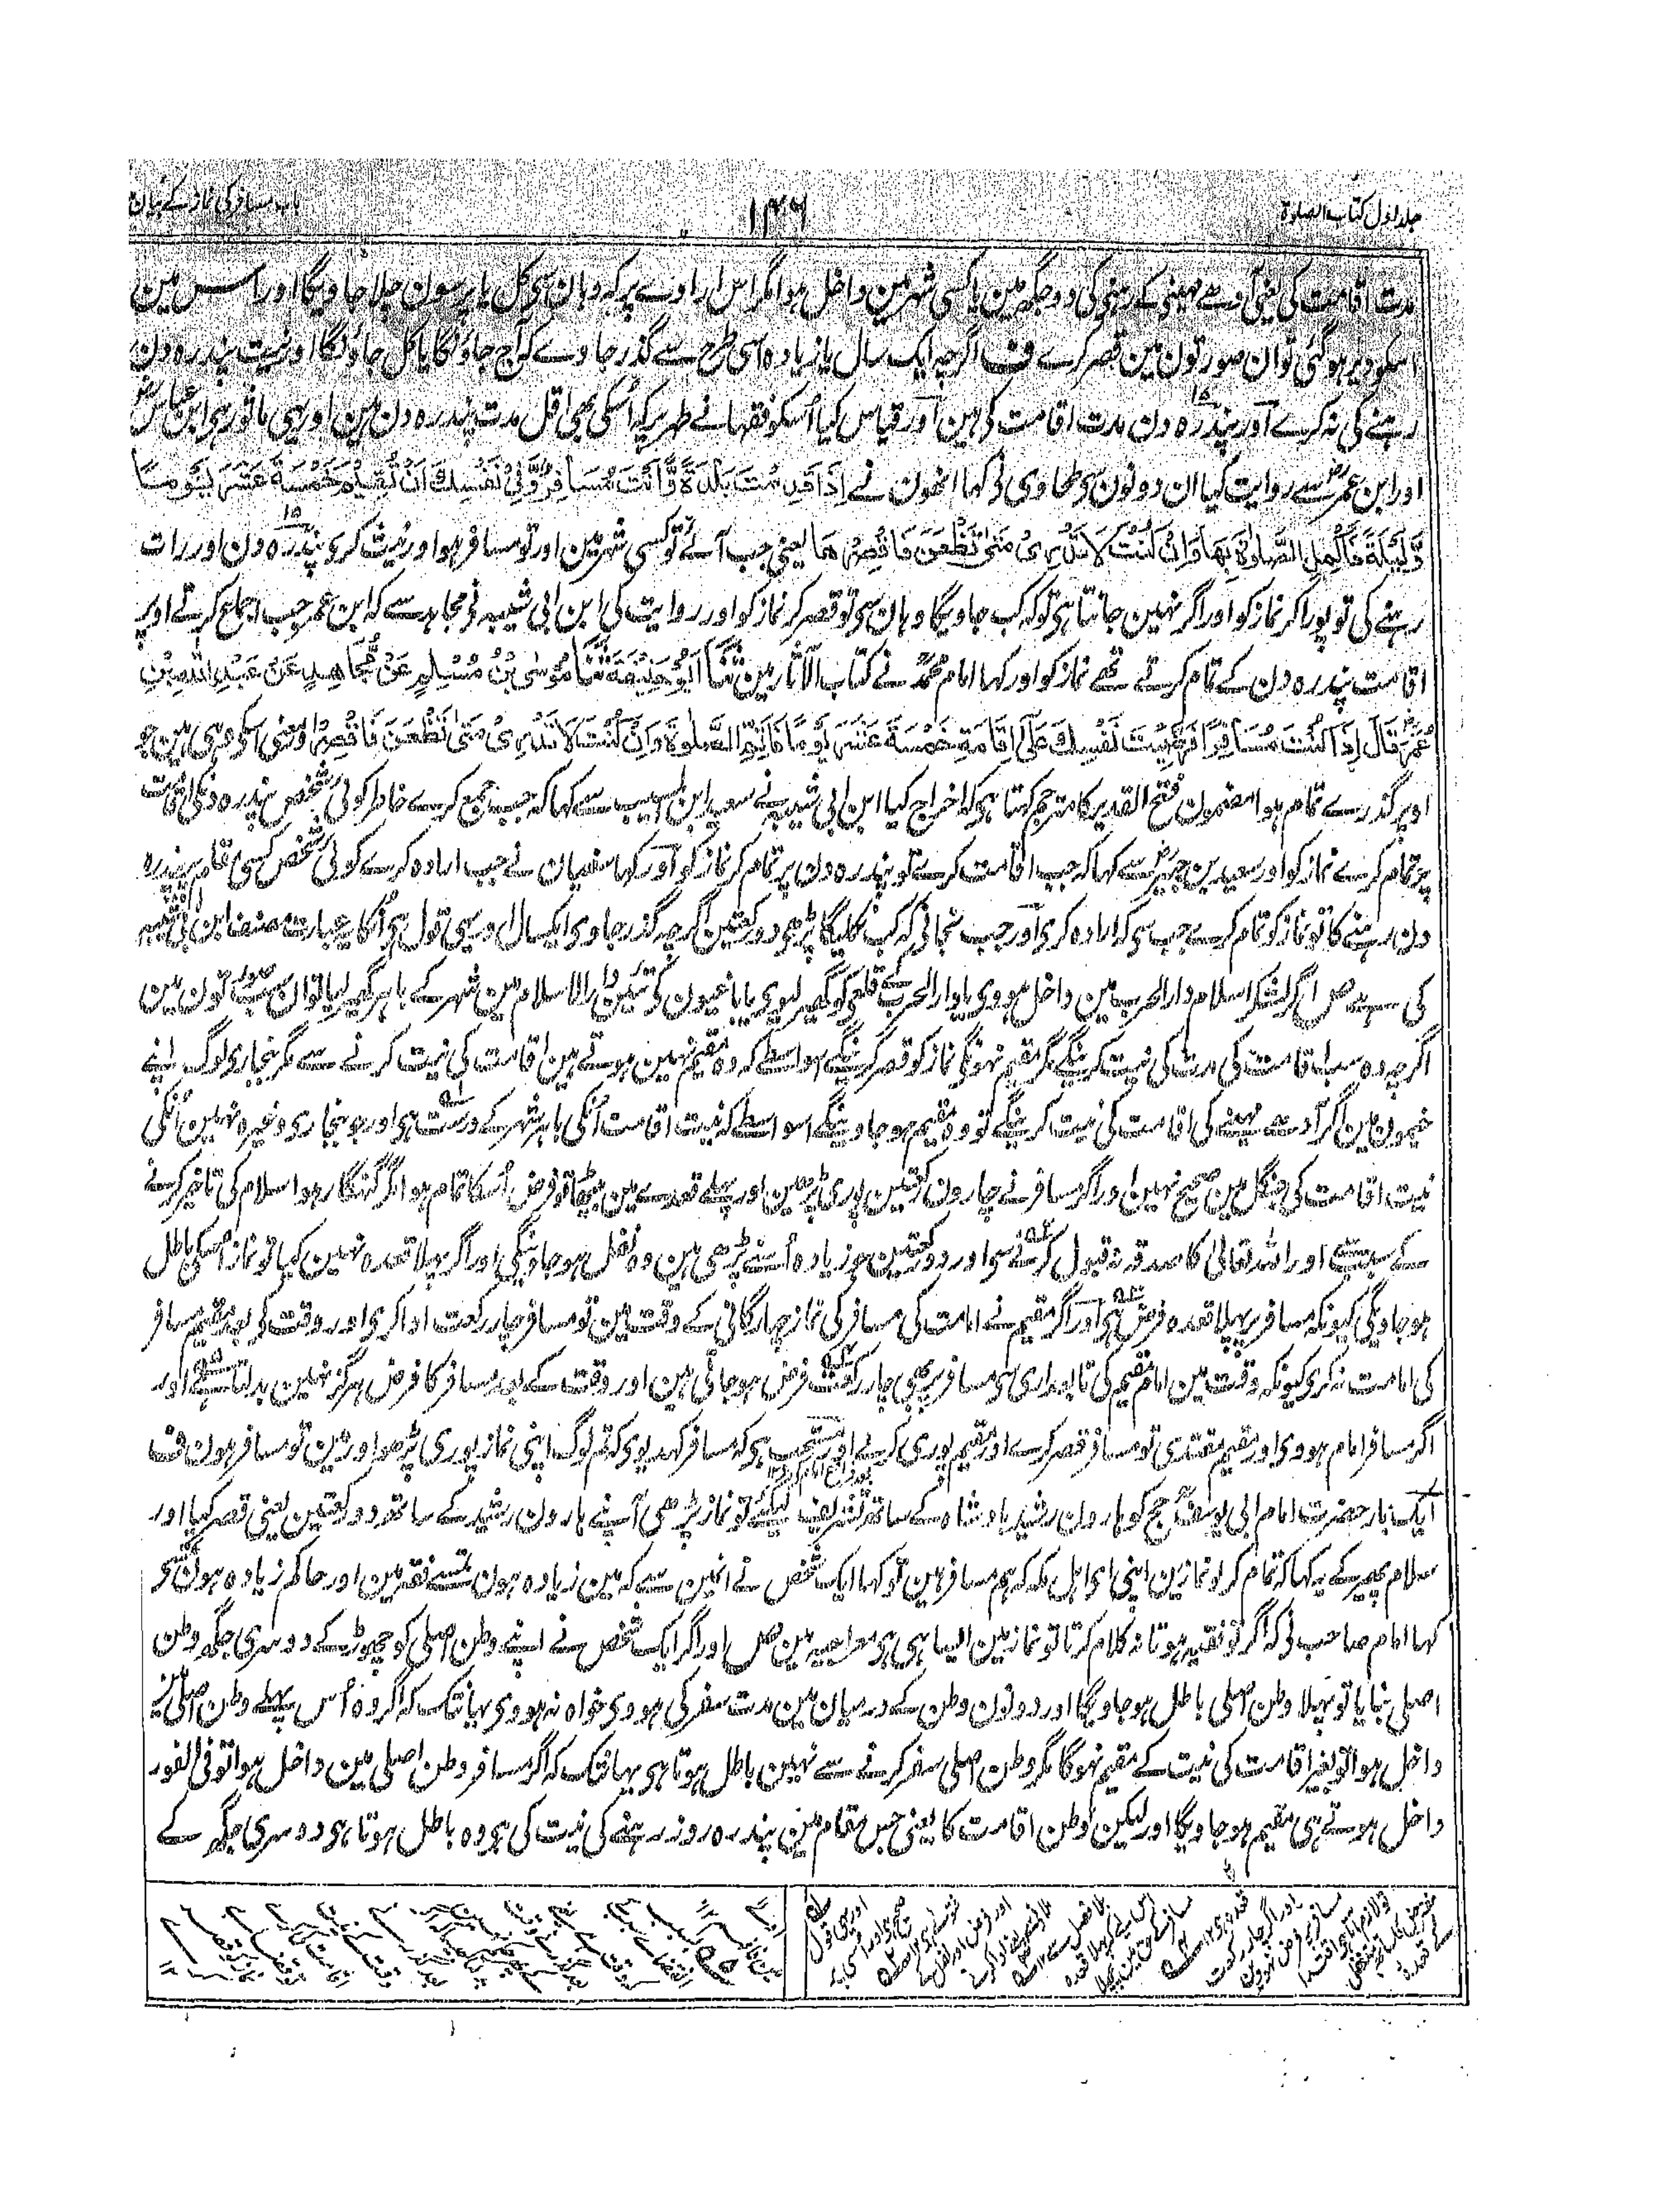 جلد اول کتاب الصلوۃ
۱۴۶
باب مسافر کی نماز کے بیان
مدت اقامت کی یعنی آدھے مہینے کے رہنے کی دو جگہ مین یا کسی شہر مین داخل ہوا مگر اس ارادے پر کہ وہان سے کل یا پرسون چلا جاویگا اور اس مین
اسکو دیر ہوگئی تو ان صورتون مین قصر کرے ف اگرچہ ایک سال یا زیادہ اسی طرح سے گذر جاوے کہ آج جاؤنگا یا کل جاؤنگا اور نیت پندرہ دن
رہنے کی نہ کرے اور پندرہ دن مدت اقامت کی ہین اور قیاس کیا اسکو فقہا نے طہر پر کہ اُسکی بھی اقل مدت پندرہ دن ہین اور یہی ماثور ہی ابن عباس
اور ابن عمر سے روایت کیا ان دونون سے طحاوی نے کہا انھون نے اِذَا قَدِمْتَ بَلْدَةً وَّاَنْتَ مُسَافِرٌ وَّفِيْ نَفْسِكَ اَنْ تُقِيْمَ خَمْسَةَ عَشَرَ يَوْمًا
وَّلَيْلَةً فَاَكْمِلِ الصَّلٰوةَ بِهَا وَاِنْ كُنْتَ لَا تَدْرِيْ مَتٰى تَظْعَنُ فَاقْصُرْهَا یعنی جب آئے تو کسی شہر مین اور تو مسافر ہو اور نیت کری پندرہ دن اور رات
رہنے کی تو پورا کر نماز کو اور اگر نہین جانتا ہی تو کہ کب جاویگا وہان سی تو قصر کر نماز کو اور روایت کی ابن ابی شیبہ نے مجاہد سے کہ ابن عمر جب اجماع کرتے اوپر
اقامت پندرہ دن کے تمام کرتے تھے نماز کو اور کہا امام محمدؒ نے کتاب الآثار مین ثَنَا اَبُوْ حَنِيْفَةَ ثَنَا مُوْسَى بْنُ مُسْلِمٍ عَنْ مُّجَاهِدٍ عَنْ عَبْدِ اللّٰهِ بْنِ
عُمَرَ قَالَ اِذَا كُنْتَ مُسَافِرًا فَوَطَّنْتَ نَفْسَكَ عَلٰى اِقَامَةِ خَمْسَةَ عَشَرَ يَوْمًا فَاَتِمَّ الصَّلٰوةَ وَاِنْ كُنْتَ لَا تَدْرِيْ مَتٰى تَظْعَنُ فَاقْصُرْ اور معنی اسکی وہی ہین جو
اوپر گذرے تمام ہوا مضمون فتح القدیر کا مترجم کہتا ہی کہ اخراج کیا ابن ابی شیبہ نے سعید ابن المسیب سے کہا کہ جب جمع کرے خاطر کوئی شخص پندرہ دنکی اقامت
پر تمام کرے نماز کو اور سعید بن جبیر سے کہا کہ جب اقامت کرے تو پندرہ دن پر تمام کر نماز کو اور کہا سفیان نے جب ارادہ کرے کوئی شخص کسی مقام پر پندرہ
دن رہنے کا تو نماز کو تمام کرے جب سی کہ ارادہ کری اور جب نجانے کہ کب نکلیگا پڑھی دو رکعتین اگرچہ گذر جاوی ایکسال اور یہی قول ہی اُنکا یہ عبارت مصنف ابن ابی شیبہ
کی ہے ص اگر لشکر اسلام دار الحرب مین داخل ہووی یا دار الحرب کے قلعے کو گھیر لیوی یا باغیون کو تئین دار الاسلام مین شہر کے باہر گھیر لیا تو ان سب صورتون مین
اگرچہ وہ سب اقامت کی مدت کی نیت کرینگے مگر مقیم نہونگے نماز کو قصر کرینگے اسواسطے کہ وہ مقیم نہین ہوتے ہین اقامت کی نیت کرنے سے مگر بنجاری لوگ اپنے
خیمون مین اگر آدھے مہینے کی اقامت کی نیت کرینگے تو وہ مقیم ہوجاوینگے اسواسطے کہ نیت اقامت اُنکی باہر شہر کے درست ہی اور جو بنجاری وغیرہ نہین اُنکی
نیت اقامت کی جنگل مین صحیح نہین اور اگر مسافر نے چارون رکعتین پوری پڑھین اور پہلے قعدے مین بیٹھا تو فرض اُسکا تمام ہوا مگر گنہگار ہوا سلام کی تاخیر کرنے
کے سبب سے اور اللہ تعالیٰ کا صدقہ نہ قبول کرنے سی اور دو رکعتین جو زیادہ اُسنے پڑھی ہین وہ نفل ہوجاوینگی اور اگر پہلا قعدہ نہین کیا تو نماز اسکی باطل
ہوجاویگی کیونکہ مسافر پر پہلا قعدہ فرض ہی اور اگر مقیم نے امامت کی مسافر کی نماز چہارگانی کے وقت مین تو مسافر چار رکعت ادا کری اور وقت کی بعد مقیم مسافر
کی امامت نہ کری کیونکہ وقت مین امام مقیم کی تابعداری سی مسافر پر بھی چار رکعت فرض ہوجاتی ہین اور وقت کے بعد مسافر کا فرض ہرگز نہین بدلتا ہے اور
اگر مسافر امام ہووی اور مقیم مقتدی تو مسافر قصر کرے اور مقیم پوری کرلے اور مستحب ہی کہ مسافر کہدیوی کہ تم لوگ اپنی نماز پوری پڑھو اور مین تو مسافر ہون ف
ایک بار حضرت امام ابی یوسفؒ حج کو ہارون رشید بادشاہ کے ساتھ تشریف لیگئے تو نماز پڑھی آپنے ہارون رشید کے ساتھ دو رکعتین یعنی قصر کیا اور
سلام پھیر کے یہ کہا کہ تمام کر لو نمازین اپنی ای اہل مکہ کہ ہم مسافر ہین تو کہا ایک شخص نے انمین سے کہ مین زیادہ ہون تمسے فقہ مین اور حاکم زیادہ ہون
کہا امام صاحب نی کہ اگر تو فقیہ ہوتا نہ کلام کرتا تو نماز مین ایسا ہی ہی معراجیہ مین ص اور اگر ایک شخص نے اپنے وطن اصلی کو چھوڑ کے دوسری جگہ وطن
اصلی بنایا تو پہلا وطن اصلی باطل ہوجاویگا اور دونون وطن کے درمیان مین مدت سفر کی ہووی خواہ نہ ہووی یہانتک کہ اگر وہ اُس پہلے وطن اصلی مین
داخل ہوا تو بغیر اقامت کی نیت کے مقیم نہوگا مگر وطن اصلی سفر کرنے سے نہین باطل ہوتا ہی یہانتک کہ اگر مسافر وطن اصلی مین داخل ہوا تو فی الفور
داخل ہوتے ہی مقیم ہوجاویگا اور لیکین وطن اقامت کا یعنی جس مقام مین پندرہ روز رہنے کی نیت کی ہی وہ باطل ہوتا ہی دوسری جگہ کے